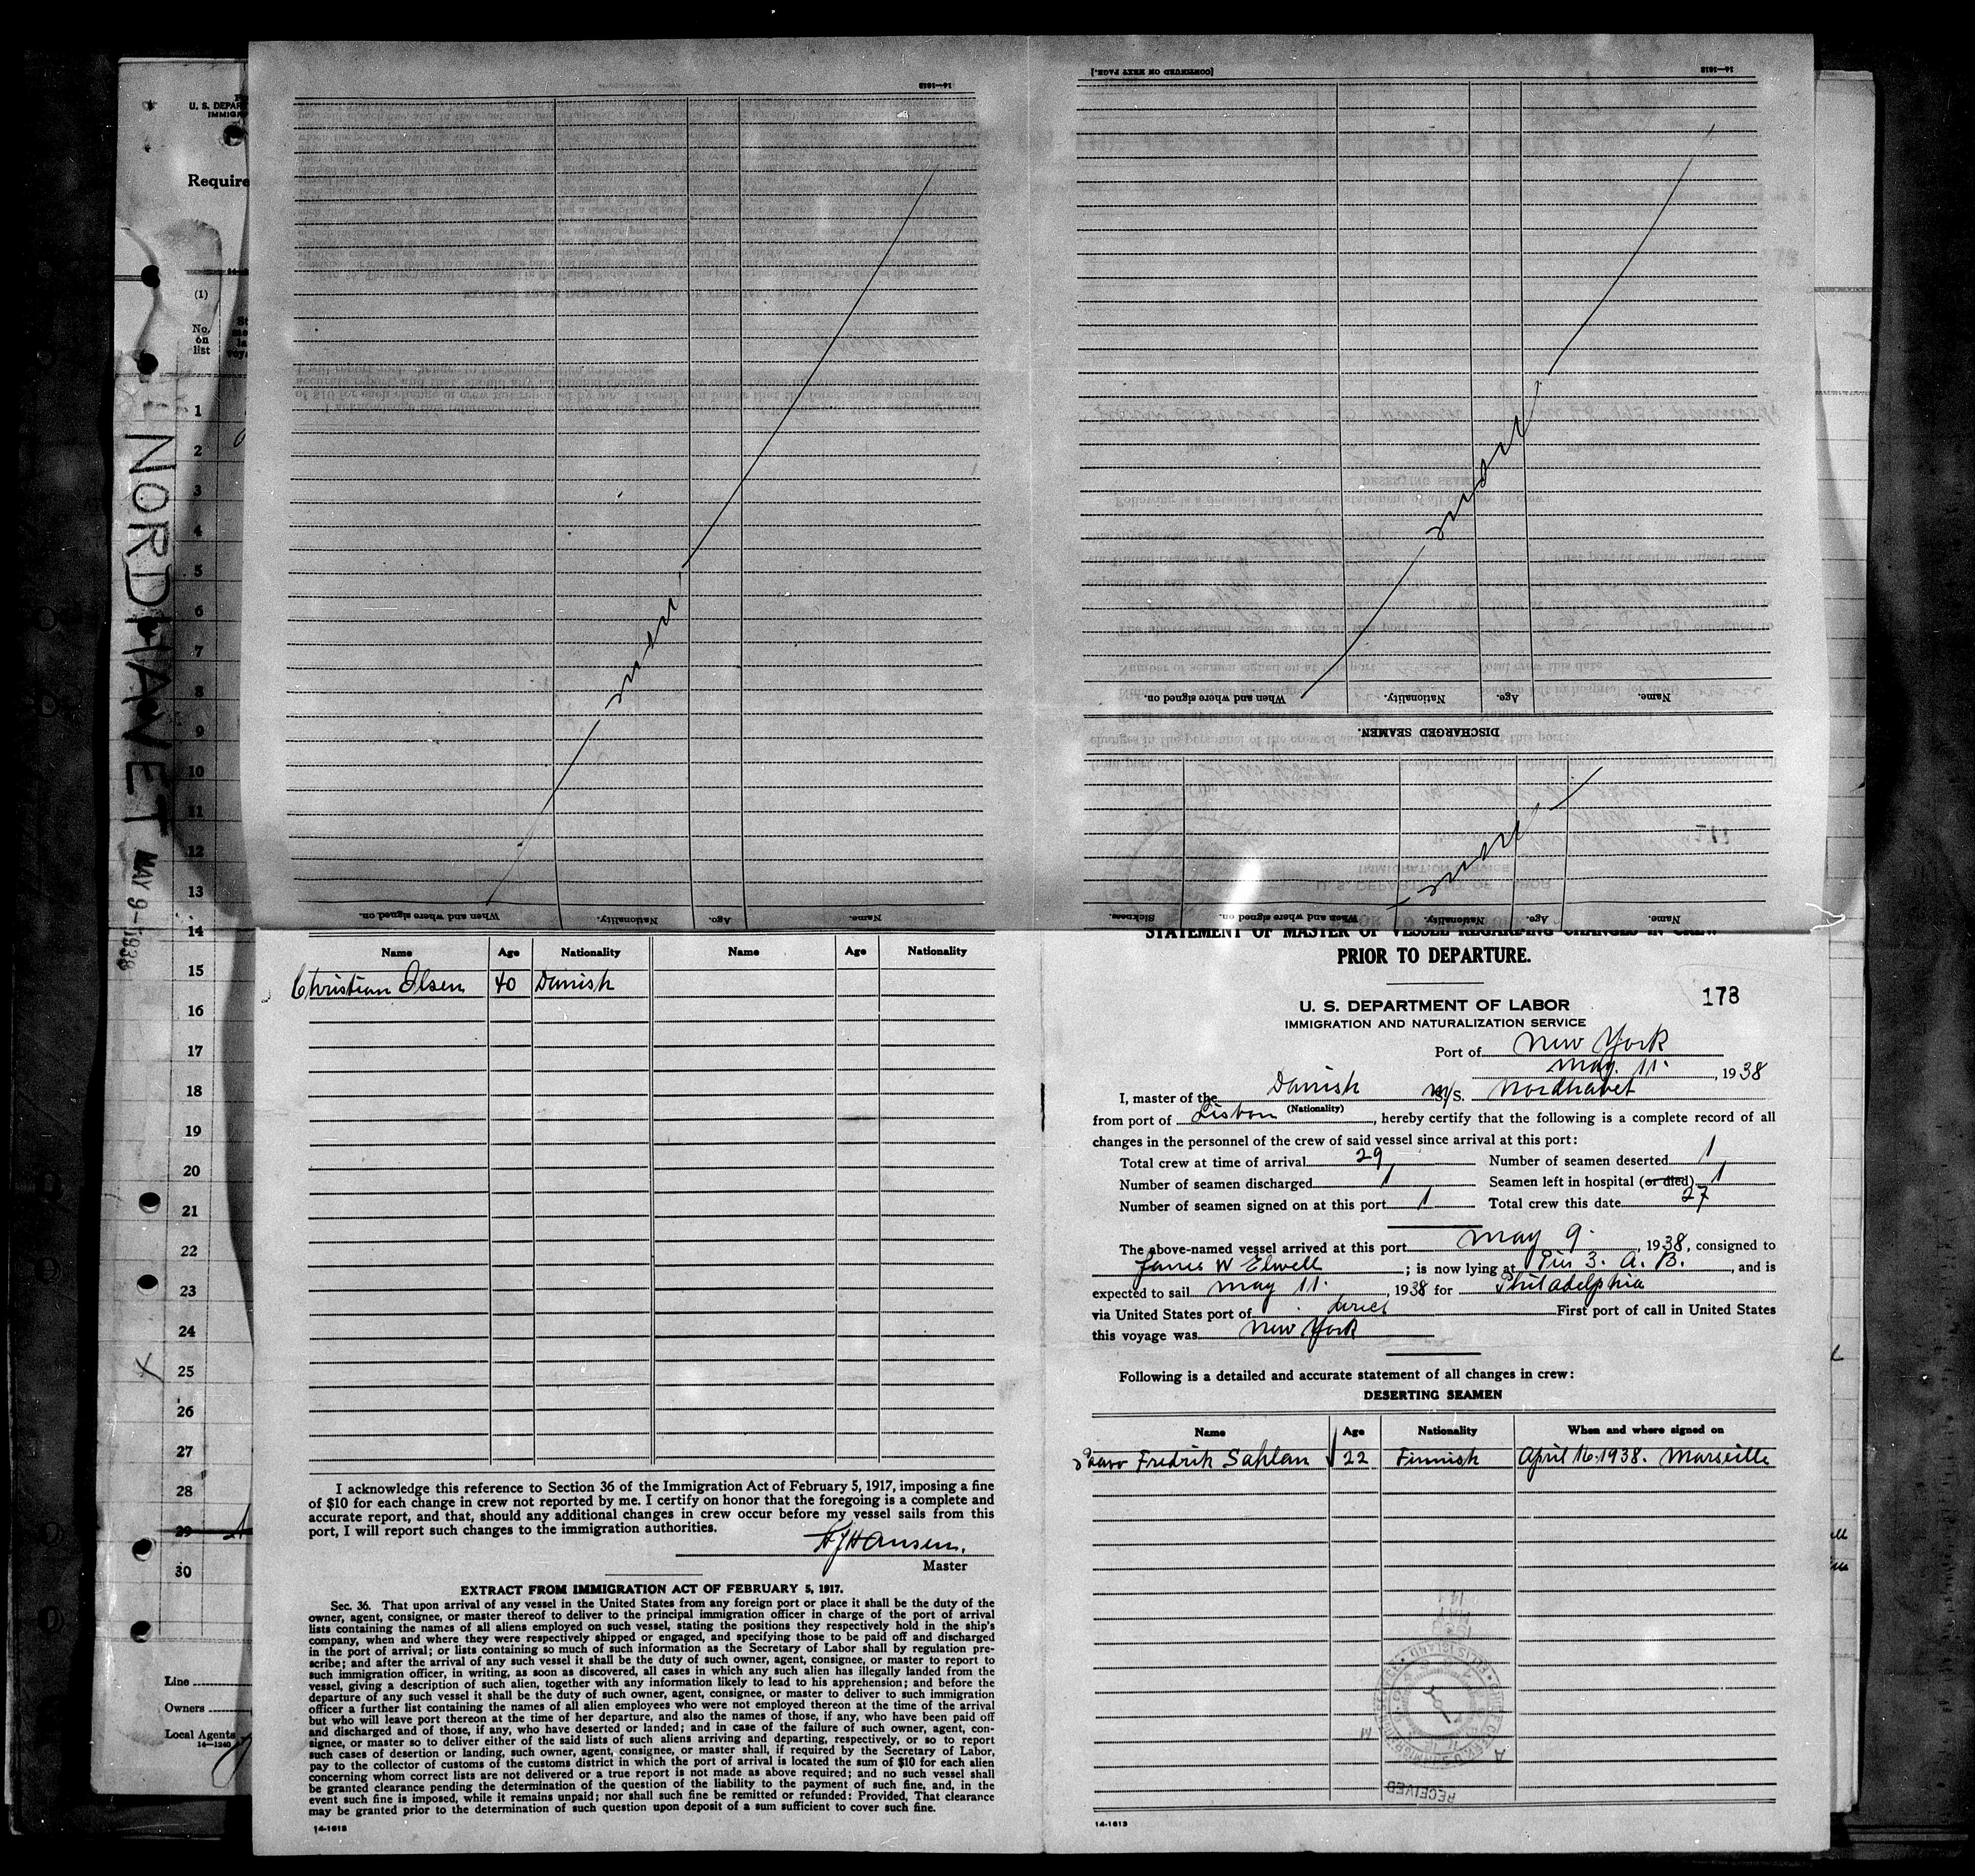 U. S. DEPAR
IMMIGR
Require
(1)
No. on list
1
2
3
4
5
6
7
8
9
10
11
12
13
14
15
16
17
18
19
20
21
22
23
24
25
26
27
28
29
30
Line
Owners
Local Agents
14—1240
NORDHAVET MAY 9-1938
14—1613
When and where signed on.
Nationality.
Age.
Name.
[CONTINUED ON NEXT PAGE.]
14—1613
When and where signed on.
Nationality.
Age.
Name.
DISCHARGED SEAMEN.
Sickness.
When and where signed on.
Nationality.
Age.
Name.
Name Age Nationality Name Age Nationality
Christian Olsen 40 Danish
I acknowledge this reference to Section 36 of the Immigration Act of February 5, 1917, imposing a fine
of $10 for each change in crew not reported by me. I certify on honor that the foregoing is a complete and
accurate report, and that, should any additional changes in crew occur before my vessel sails from this
port, I will report such changes to the immigration authorities.
HJHansen.
Master
EXTRACT FROM IMMIGRATION ACT OF FEBRUARY 5, 1917.
Sec. 36. That upon arrival of any vessel in the United States from any foreign port or place it shall be the duty of the
owner, agent, consignee, or master thereof to deliver to the principal immigration officer in charge of the port of arrival
lists containing the names of all aliens employed on such vessel, stating the positions they respectively hold in the ship's
company, when and where they were respectively shipped or engaged, and specifying those to be paid off and discharged
in the port of arrival; or lists containing so much of such information as the Secretary of Labor shall by regulation pre-
scribe; and after the arrival of any such vessel it shall be the duty of such owner, agent, consignee, or master to report to
such immigration officer, in writing, as soon as discovered, all cases in which any such alien has illegally landed from the
vessel, giving a description of such alien, together with any information likely to lead to his apprehension; and before the
departure of any such vessel it shall be the duty of such owner, agent, consignee, or master to deliver to such immigration
officer a further list containing the names of all alien employees who were not employed thereon at the time of the arrival
but who will leave port thereon at the time of her departure, and also the names of those, if any, who have been paid off
and discharged and of those, if any, who have deserted or landed; and in case of the failure of such owner, agent, con-
signee, or master so to deliver either of the said lists of such aliens arriving and departing, respectively, or so to report
such cases of desertion or landing, such owner, agent, consignee, or master shall, if required by the Secretary of Labor,
pay to the collector of customs of the customs district in which the port of arrival is located the sum of $10 for each alien
concerning whom correct lists are not delivered or a true report is not made as above required; and no such vessel shall
be granted clearance pending the determination of the question of the liability to the payment of such fine, and, in the
event such fine is imposed, while it remains unpaid; nor shall such fine be remitted or refunded: Provided, That clearance
may be granted prior to the determination of such question upon deposit of a sum sufficient to cover such fine.
14-1613
STATEMENT OF MASTER OF VESSEL REGARDING CHANGES IN CREW
PRIOR TO DEPARTURE.
173
U. S. DEPARTMENT OF LABOR
IMMIGRATION AND NATURALIZATION SERVICE
Port of New York
May 11. , 1938
I, master of the Danish M/S. Nordhavet
(Nationality)
from port of Lisbon, hereby certify that the following is a complete record of all
changes in the personnel of the crew of said vessel since arrival at this port:
Total crew at time of arrival 29 Number of seamen deserted 1
Number of seamen discharged 1 Seamen left in hospital (or died) 1
Number of seamen signed on at this port 1 Total crew this date 27
The above-named vessel arrived at this port May 9. , 1938, consigned to
James W Elwell ; is now lying at Pier 3. A. B. , and is
expected to sail May 11. , 1938 for Philadelphia
via United States port of direct First port of call in United States
this voyage was New York
Following is a detailed and accurate statement of all changes in crew:
DESERTING SEAMEN
Name Age Nationality When and where signed on
Fredrik Sahlan 22 Finnish April 16. 1938. Marseille
RECEIVED
14-1613